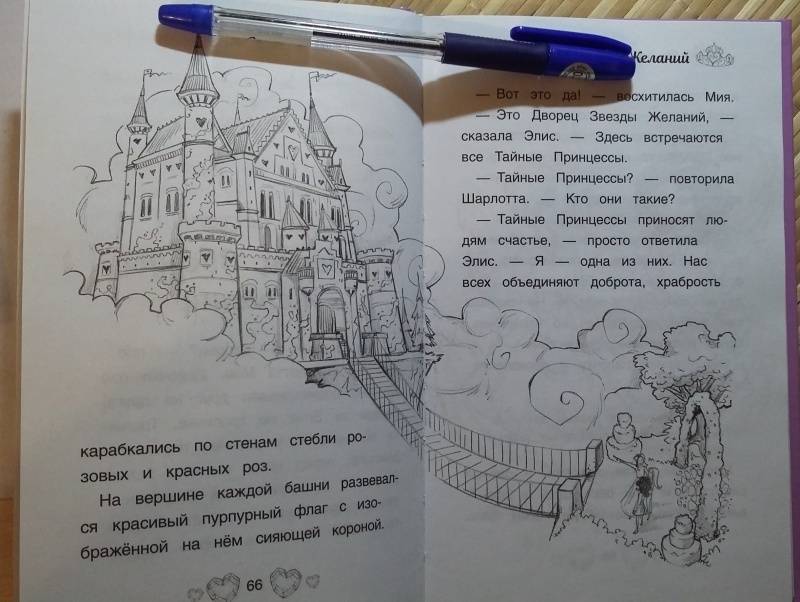 карабкались по стенам стебли ро-
зовых и красных роз.
На вершине каждой башни развевал-
ся красивый пурпурный флаг с изо-
бражённой на нём сияющей короной.
66
Желаний
— Вот это да! — восхитилась Мия.
— Это Дворец Звезды Желаний, —
сказала Элис. — Здесь встречаются
все Тайные Принцессы.
— Тайные Принцессы? — повторила
Шарлотта. — Кто они такие?
— Тайные Принцессы приносят лю-
дям счастье, — просто ответила
Элис. — Я — одна из них. Нас
всех объединяют доброта, храбрость